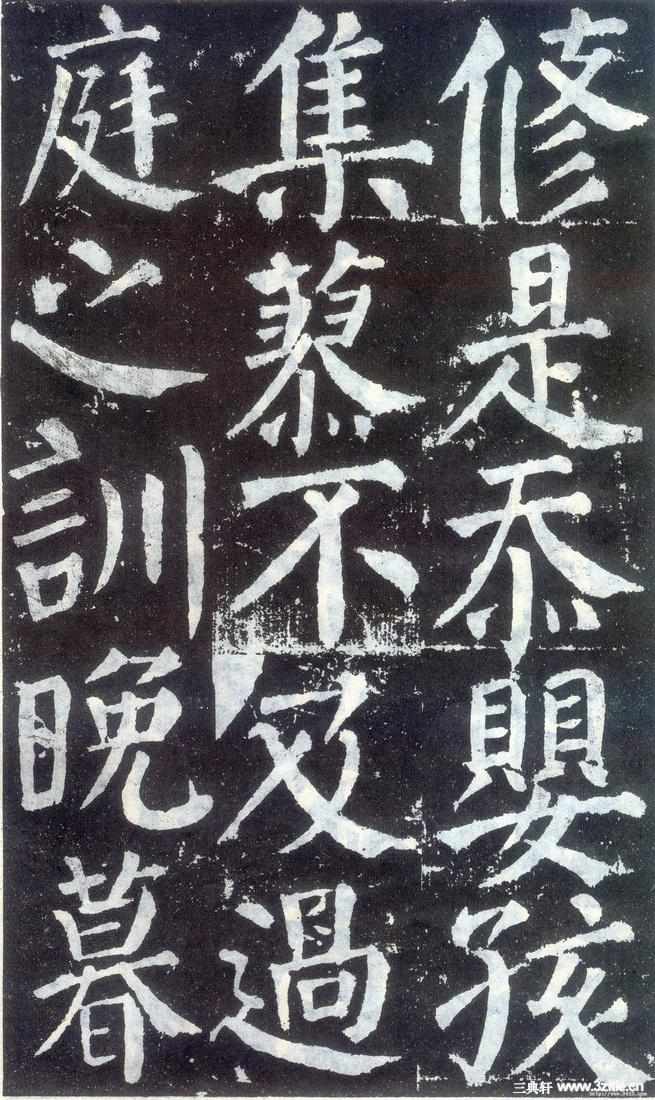 修是忝嬰孩
集蓼不及過
庭之訓晚暮
三典轩 www.3zitie.cn